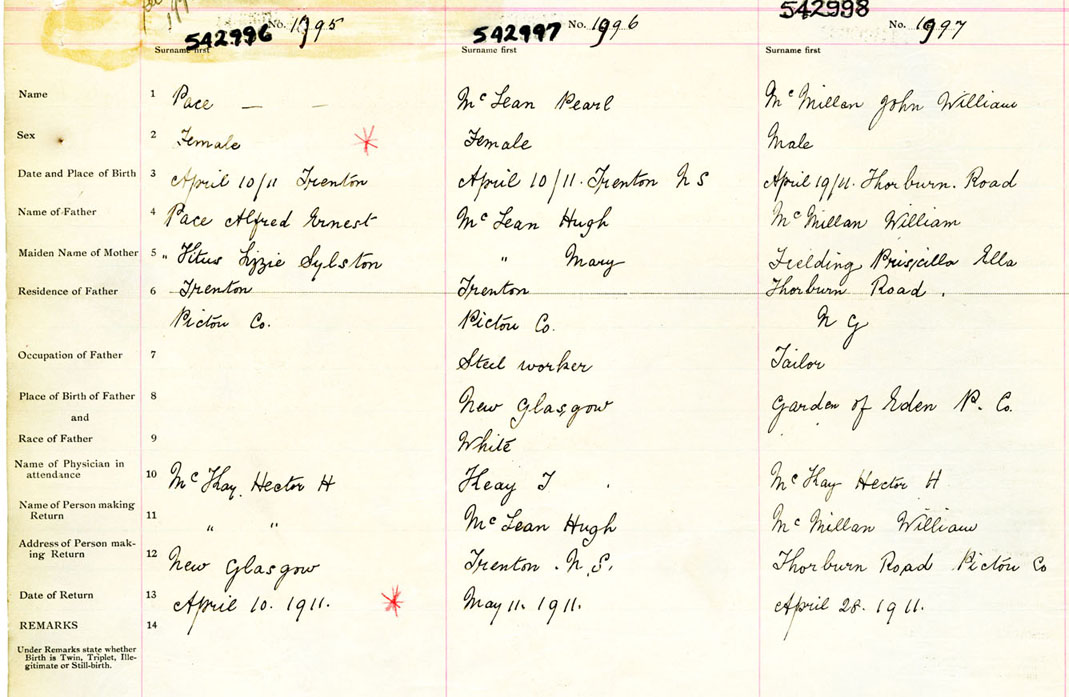 542996 No. 1995
542997 No. 1996
542998 No. 1997
Surname first Surname first Surname first
Name 1 Pace — — Mc Lean Pearl Mc Millan John William
Sex 2 Female Female Male
Date and Place of Birth 3 April 10/11 Trenton April 10/11. Trenton N S April 19/11. Thorburn. Road
Name of Father 4 Pace Alfred Ernest Mc Lean Hugh Mc Millan William
Maiden Name of Mother 5 " Titus Lizzie Sylston " Mary Fielding Priscilla Ella
Residence of Father 6 Trenton Trenton Thorburn Road.
Pictou Co. Pictou Co. N G
Occupation of Father 7 Steel worker Tailor
Place of Birth of Father 8 New Glasgow Garden of Eden P. Co.
and
Race of Father 9 White
Name of Physician in
attendance 10 Mc Kay Hector H Keay T Mc Kay Hector H
Name of Person making
Return 11 " " Mc Lean Hugh Mc Millan William
Address of Person mak-
ing Return 12 New Glasgow Trenton. N.S. Thorburn Road Pictou Co
Date of Return 13 April 10. 1911. May 11. 1911. April 28. 1911.
REMARKS 14
Under Remarks state whether
Birth is Twin, Triplet, Ille-
gitimate or Still-birth.